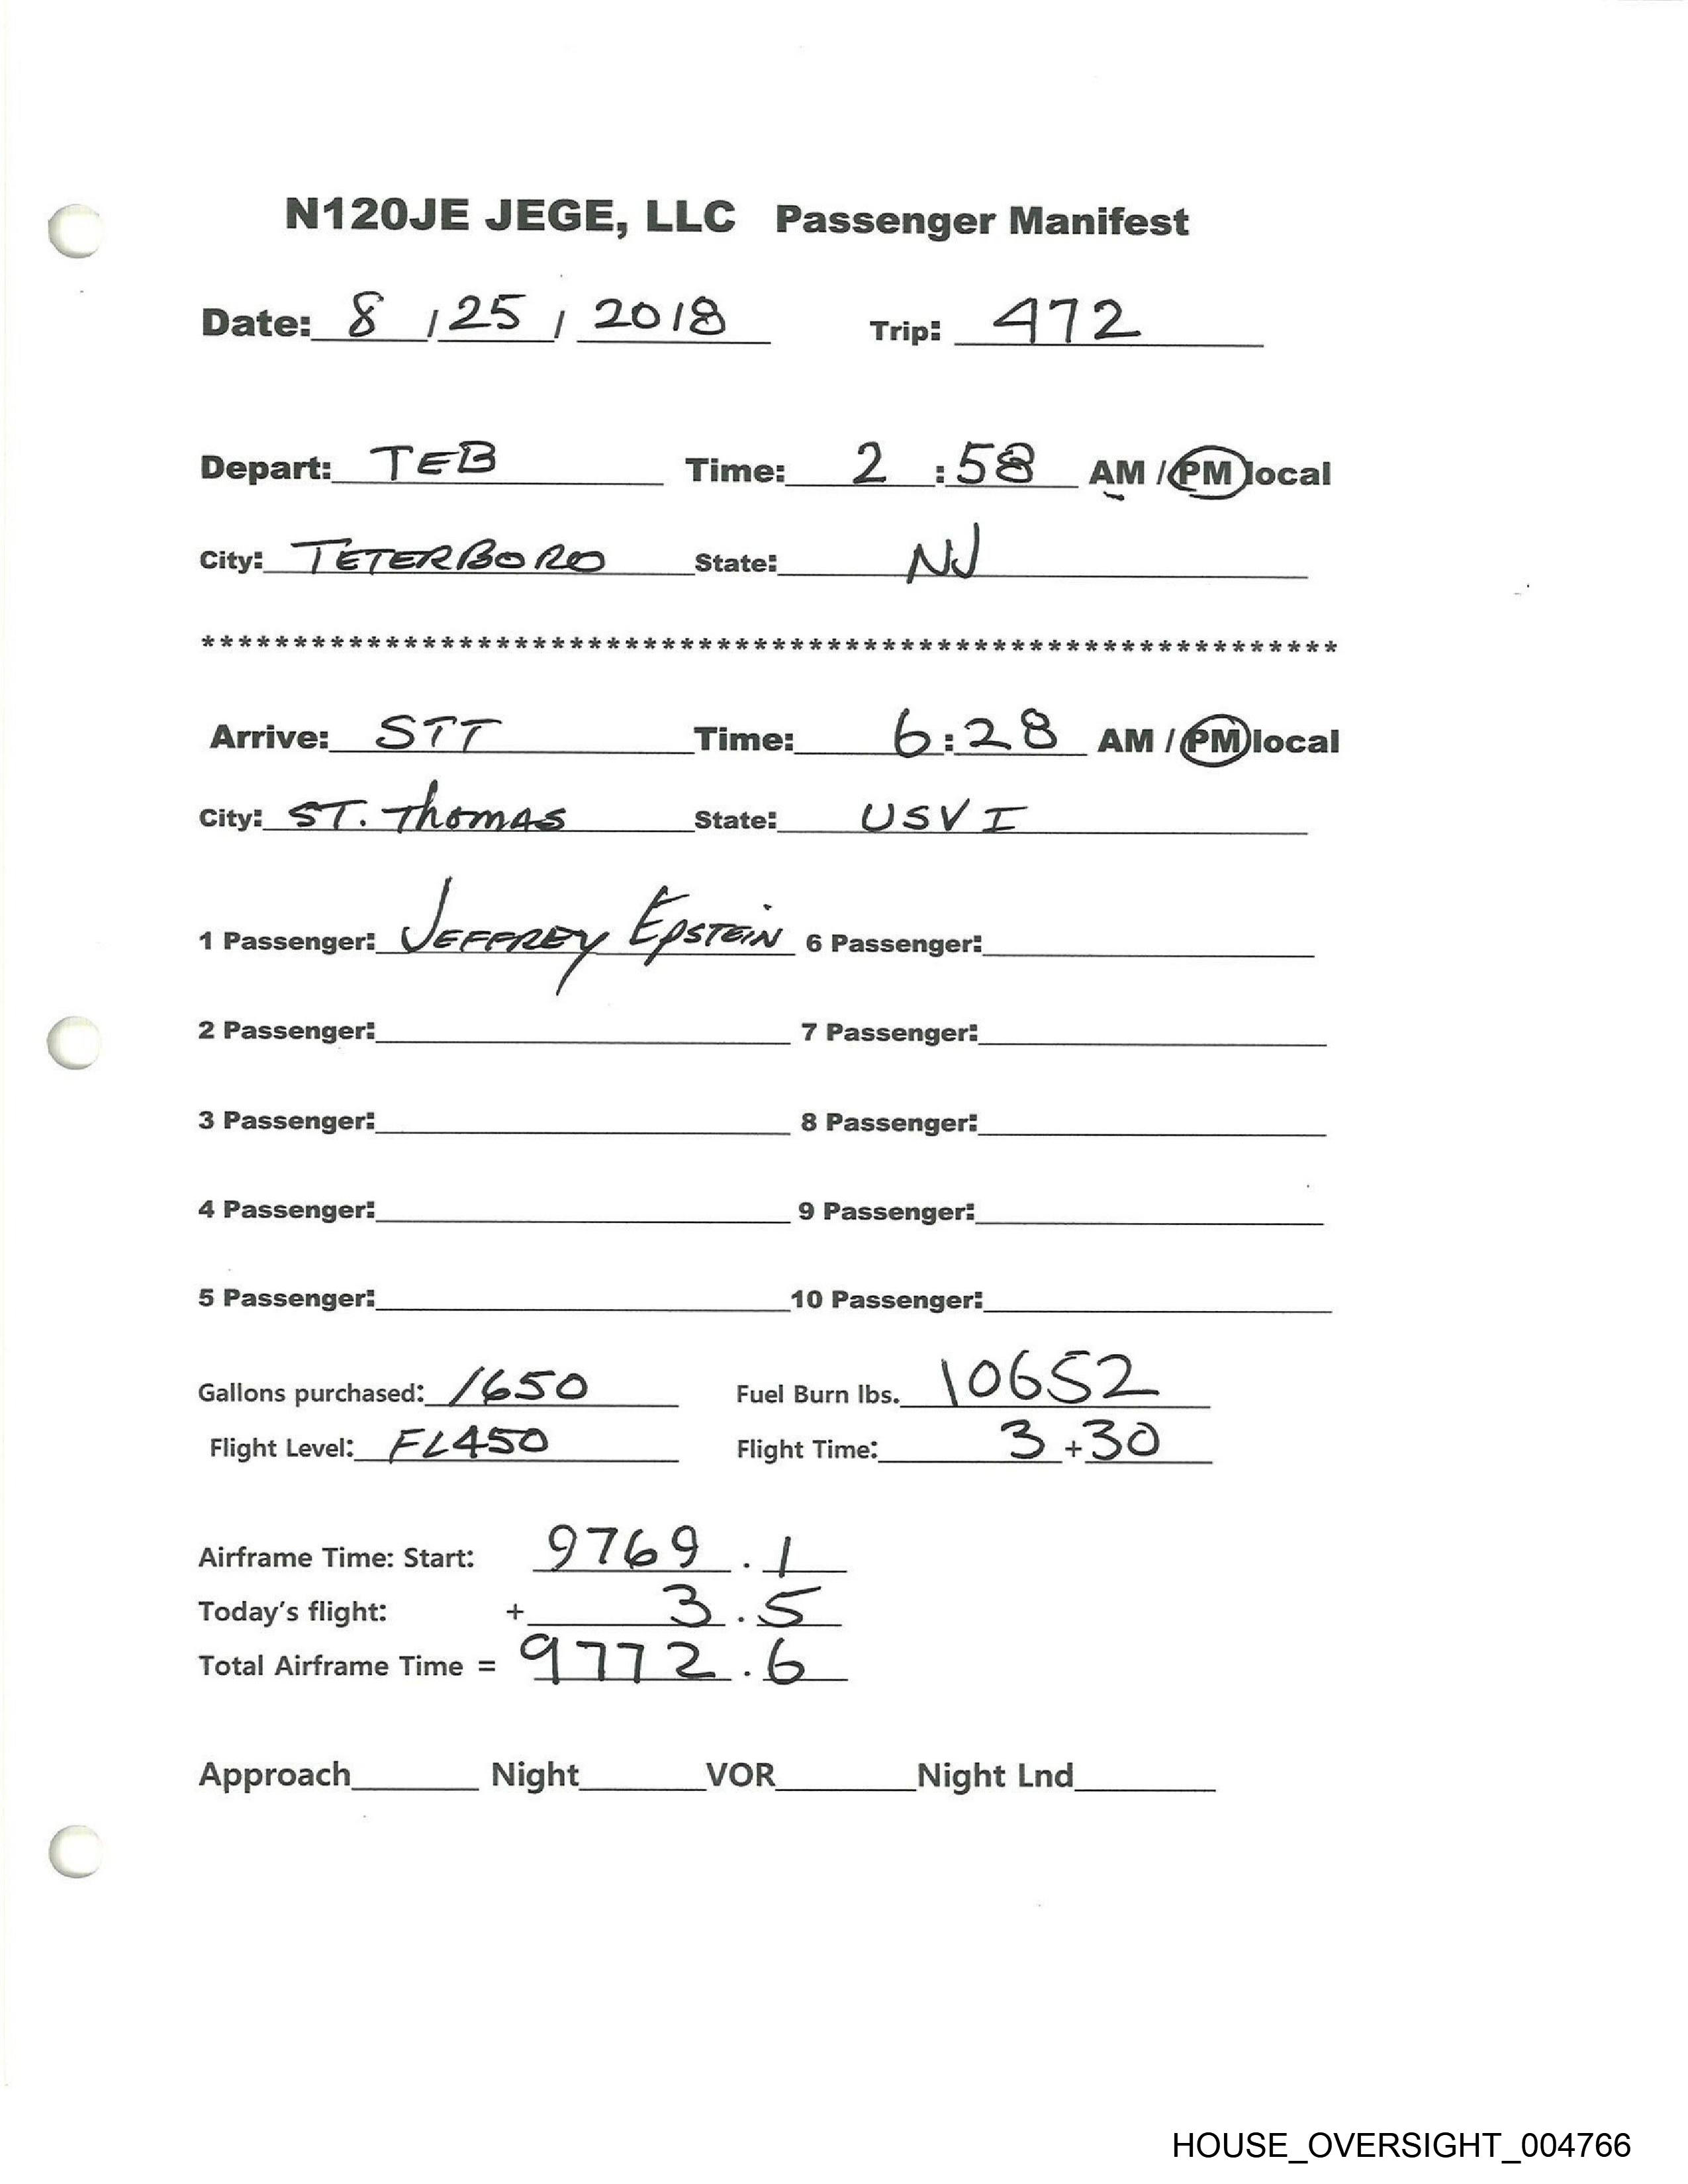 N120JE JEGE, LLC Passenger Manifest
Date: 8 / 25 / 2018 Trip: 472
Depart: TEB Time: 2 : 58 AM / PM local
City: TETERBORO State: NJ
******************************************************************
Arrive: STT Time: 6 : 28 AM / PM local
City: ST. Thomas State: USVI
1 Passenger: JEFFREY EPSTEIN 6 Passenger:
2 Passenger: 7 Passenger:
3 Passenger: 8 Passenger:
4 Passenger: 9 Passenger:
5 Passenger: 10 Passenger:
Gallons purchased: 1650 Fuel Burn lbs. 10652
Flight Level: FL450 Flight Time: 3 + 30
Airframe Time: Start: 9769 . 1
Today's flight: + 3 . 5
Total Airframe Time = 9772 . 6
Approach Night VOR Night Lnd
HOUSE_OVERSIGHT_004766